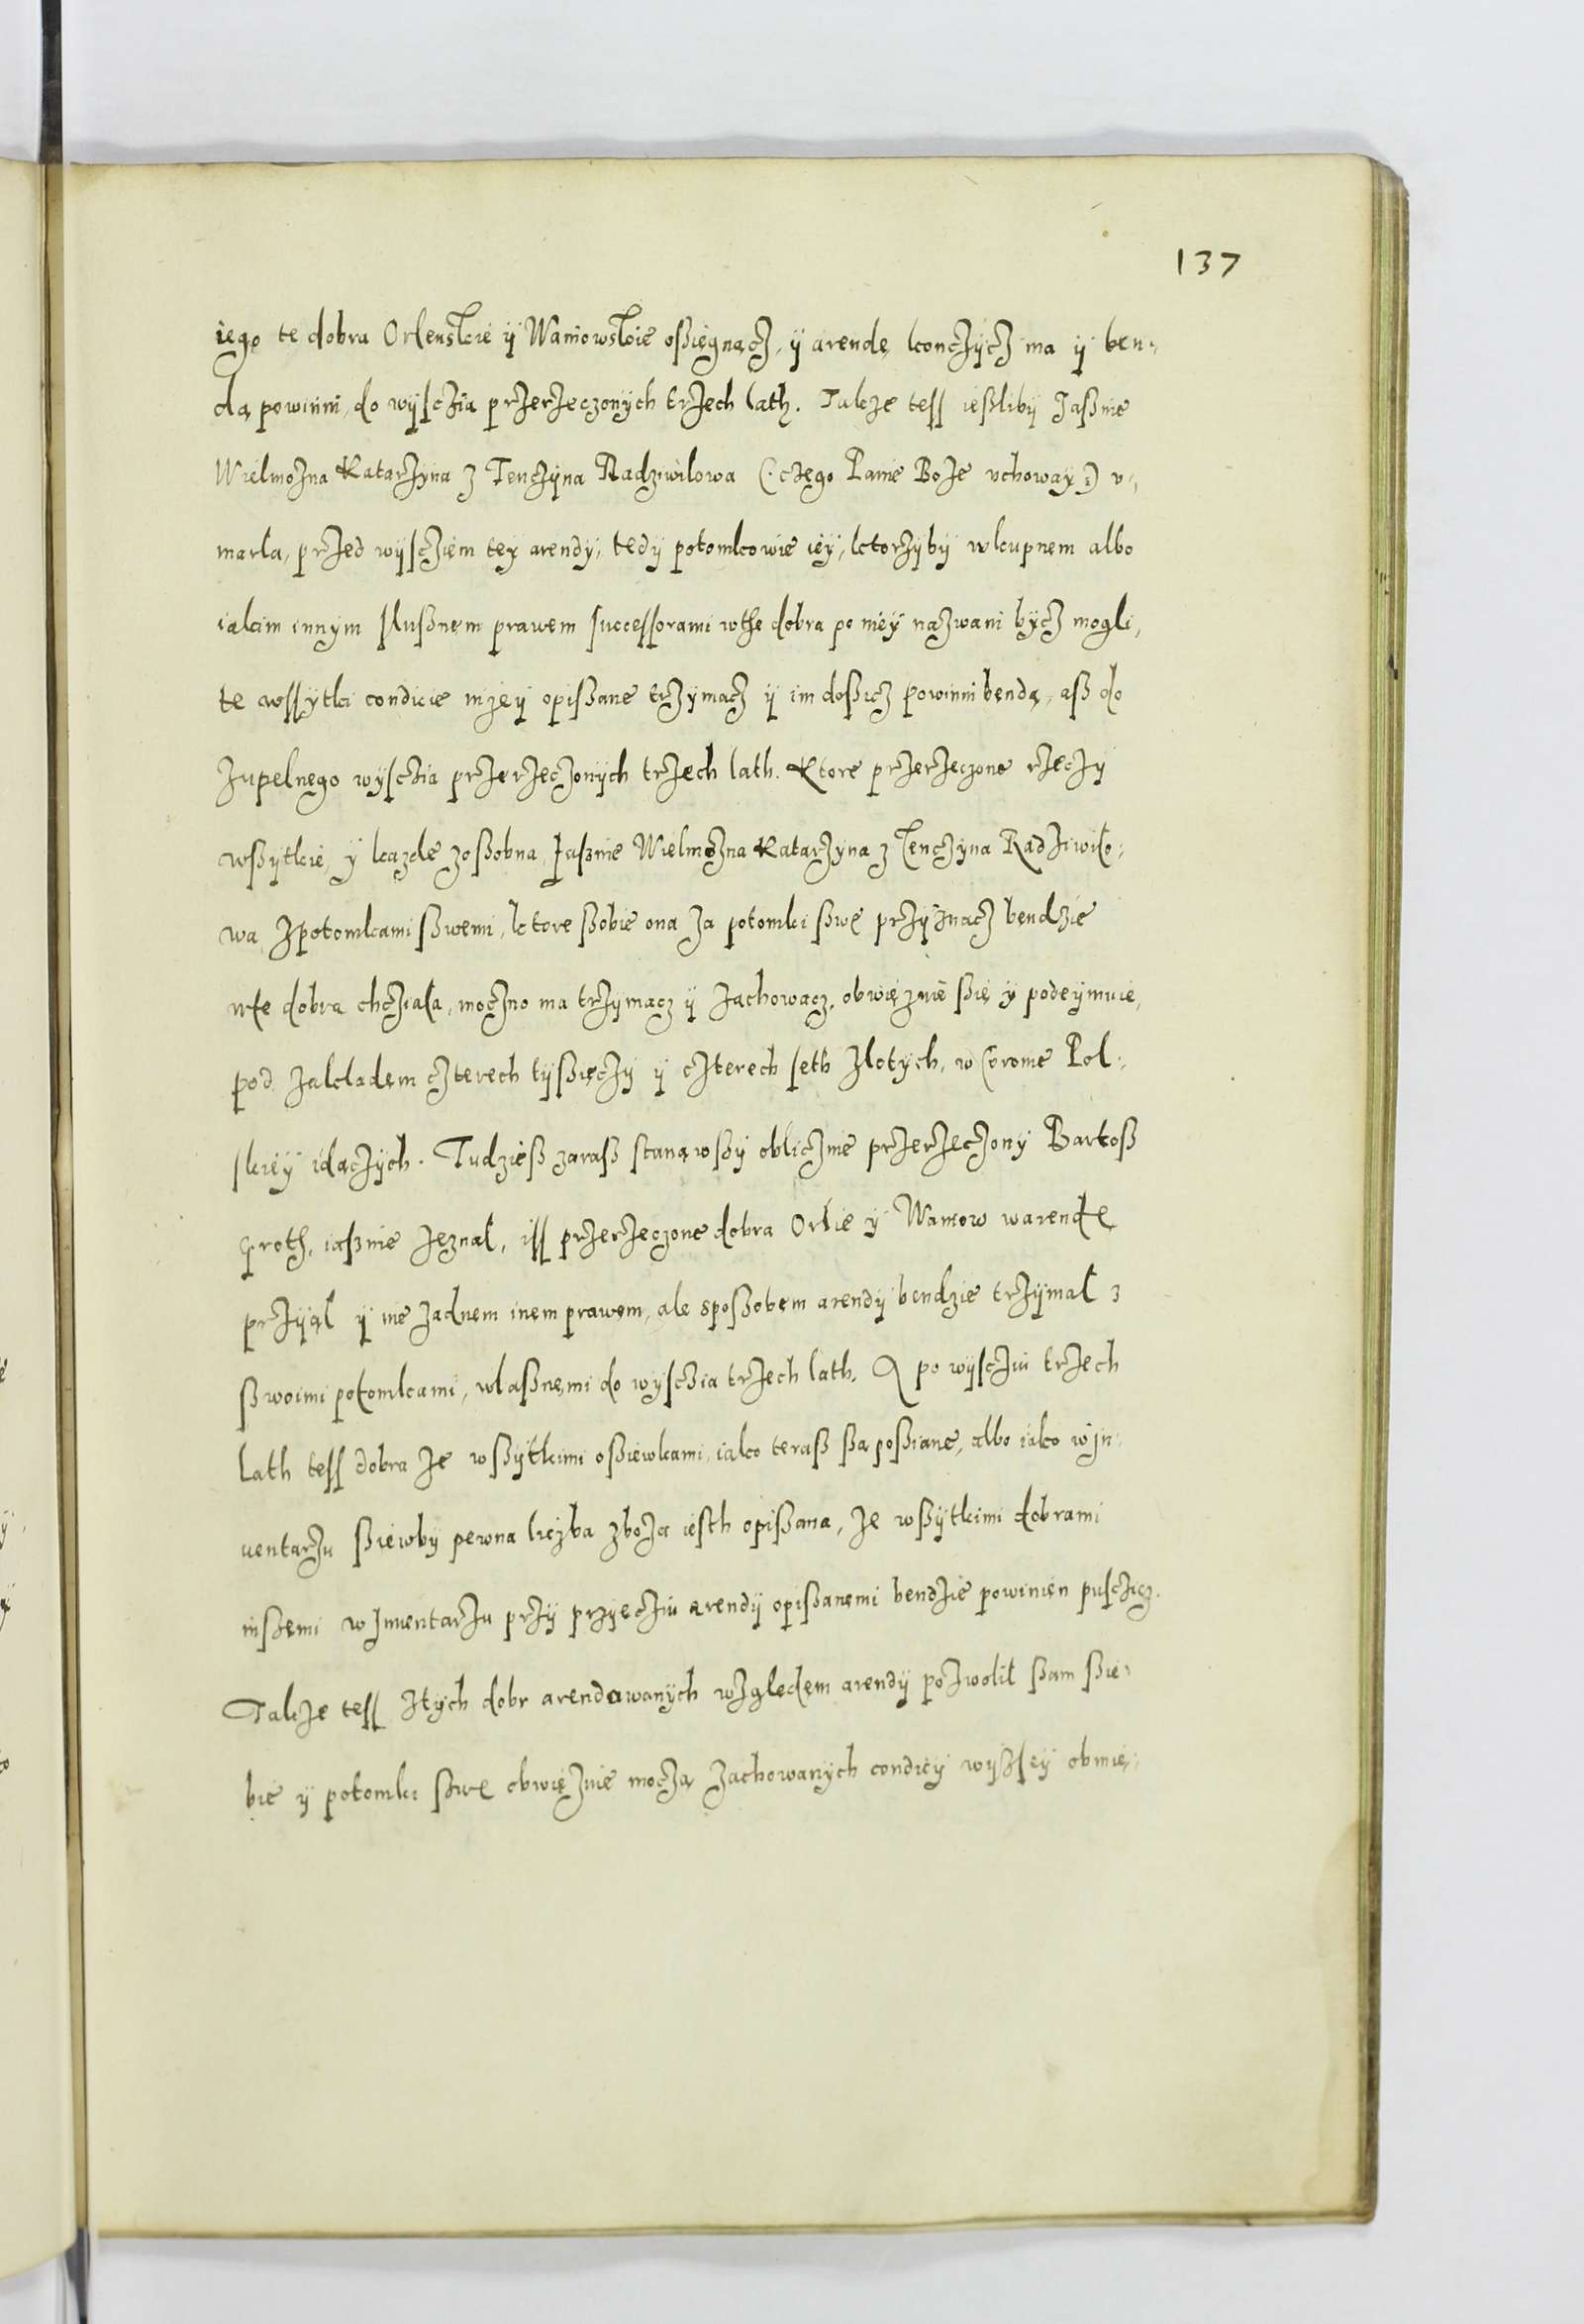 137
iego te dobra Orlenskie ÿ Waniowskie oßięgnącz, ÿ arende konczÿcz ma ÿ ben-
dą powinni, do wÿsczia przerzeczonÿch trzech lath. Takze tess ießlibÿ Jaßnie
Wielmozna Katarzÿna z Tenczÿna Radziwilowa (: czego Panie Boze uchoway :) u-
marla, przed wÿscziem teÿ arendÿ, tedÿ potomkowie ieÿ, ktorzÿbÿ wkupnem albo
iakim innym slußnem prawem successorami wthe dobra po nieÿ nazwani bÿcz mogli,
te wssÿtki condicie nizeÿ opißane trzÿmacz ÿ im doßicz powinni bendą, aß do
zupelnego wÿsczia przerzeczonÿch trzech lath. Ktore przerzeczone rzeczÿ
wßÿtkie ÿ kazde zoßobna Jaßnie Wielmozna Katarzÿna z Tenczÿna Radziwilo-
wa zpotomkami ßwemi, ktore ßobie ona za potomki ßwe przÿznacz bendzie
wte dobra chcziala, moczno ma trzÿmacz ÿ zachowacz, obwięzuie ßię ÿ podeÿmuie,
pod zakladem czterech tÿßięczÿ ÿ czterech seth zlotÿch, w Corone Pol-
skieÿ idączÿch. Tudzieß zaraß stanąwßÿ oblicznie przerzeczonÿ Bartoß
Groth, iaßnie zeznal, iss przerzeczone dobra Orlie ÿ Waniow warende
przÿiąl ÿ nie zadnem inem prawem, ale spoßobem arendÿ bendzie trzÿmal z
ßwoimi potomkami, wlaßnemi do wÿsczia trzech lath. A po wÿscziu trzech
lath tess dobra ze wßÿtkimi oßiewkami, iako teraß ßą poßiane, albo iako wJn-
uentarzu ßiewbÿ pewna liczba zboza iesth opißana, ze wßÿtkimi dobrami
inßemi wJnuentarzu przÿ przÿięcziu arendÿ opißanemi bendzie powinien pusczicz.
Takze tess ztÿch dobr arendowanÿch wzgledem arendÿ pozwolil ßam ßie-
bie ÿ potomki ßwe obwięzuie moczą zachowanÿch condiciÿ wÿzßeÿ obmię-